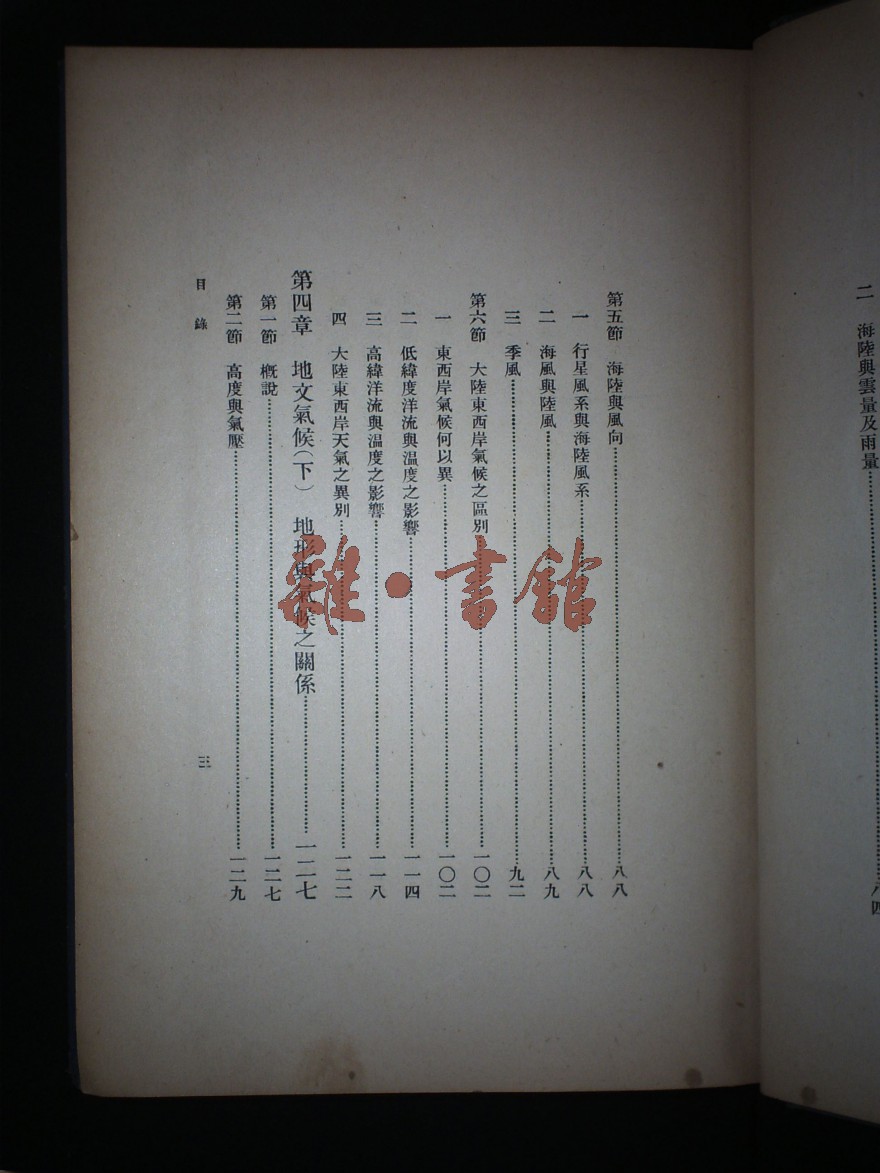 二　海陸與雲量及雨量……八四
第五節　海陸與風向……八八
一　行星風系與海陸風系……八八
二　海風與陸風……八九
三　季風……九二
第六節　大陸東西岸氣候之區別……一〇二
一　東西岸氣候何以異……一〇二
二　低緯度洋流與溫度之影響……一一四
三　高緯洋流與溫度之影響……一一八
四　大陸東西岸天氣之異別……一二二
第四章　地文氣候（下）　地形與氣候之關係……一二七
第一節　概說……一二七
第二節　高度與氣壓……一二九
目錄
三
雜·書館